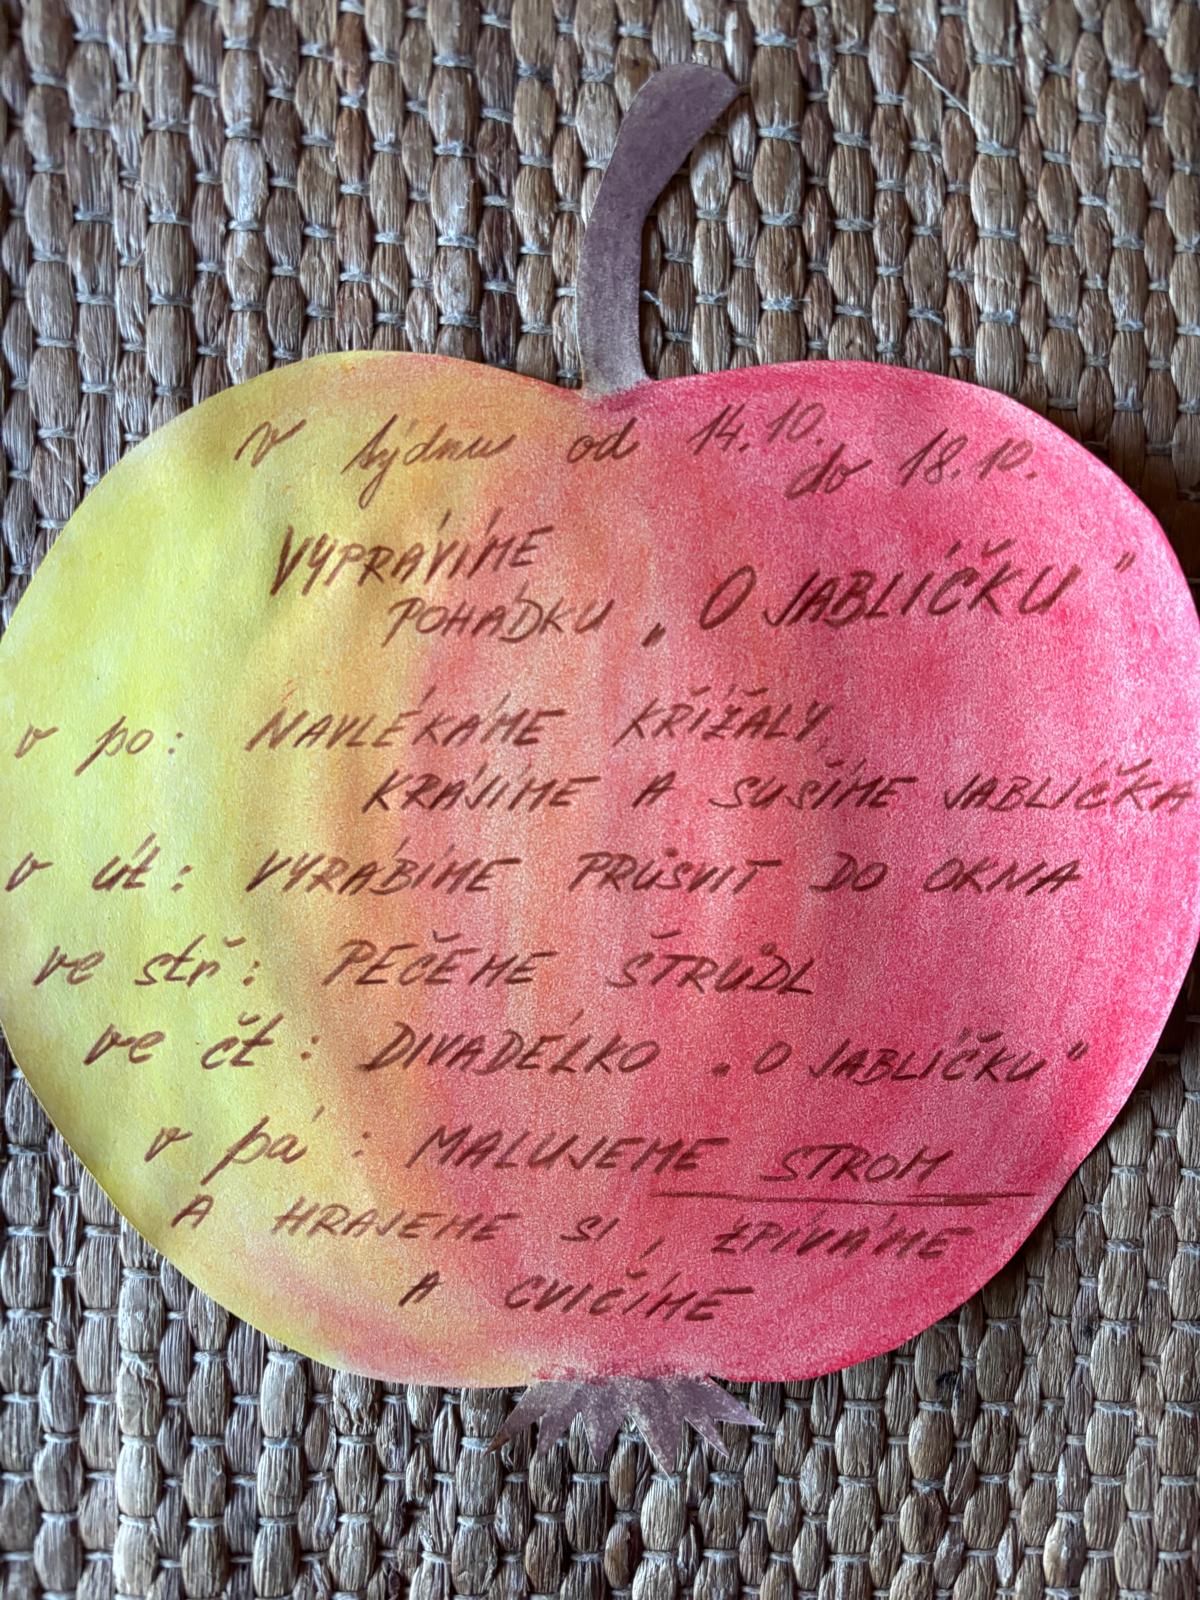 v týdnu od 14.10.
do 18.10.
VYPRÁVÍME
POHÁDKU „O JABLÍČKU"
v po: NAVLÉKÁME KŘÍŽALY,
KRÁJÍME A SUŠÍME JABLÍČKA
v út: VYRÁBÍME PRŮSVIT DO OKNA
ve stř: PEČEME ŠTRŮDL
ve čt: DIVADÉLKO „O JABLÍČKU"
v pá: MALUJEME STROM
A HRAJEME SI, ZPÍVÁME
A CVIČÍME